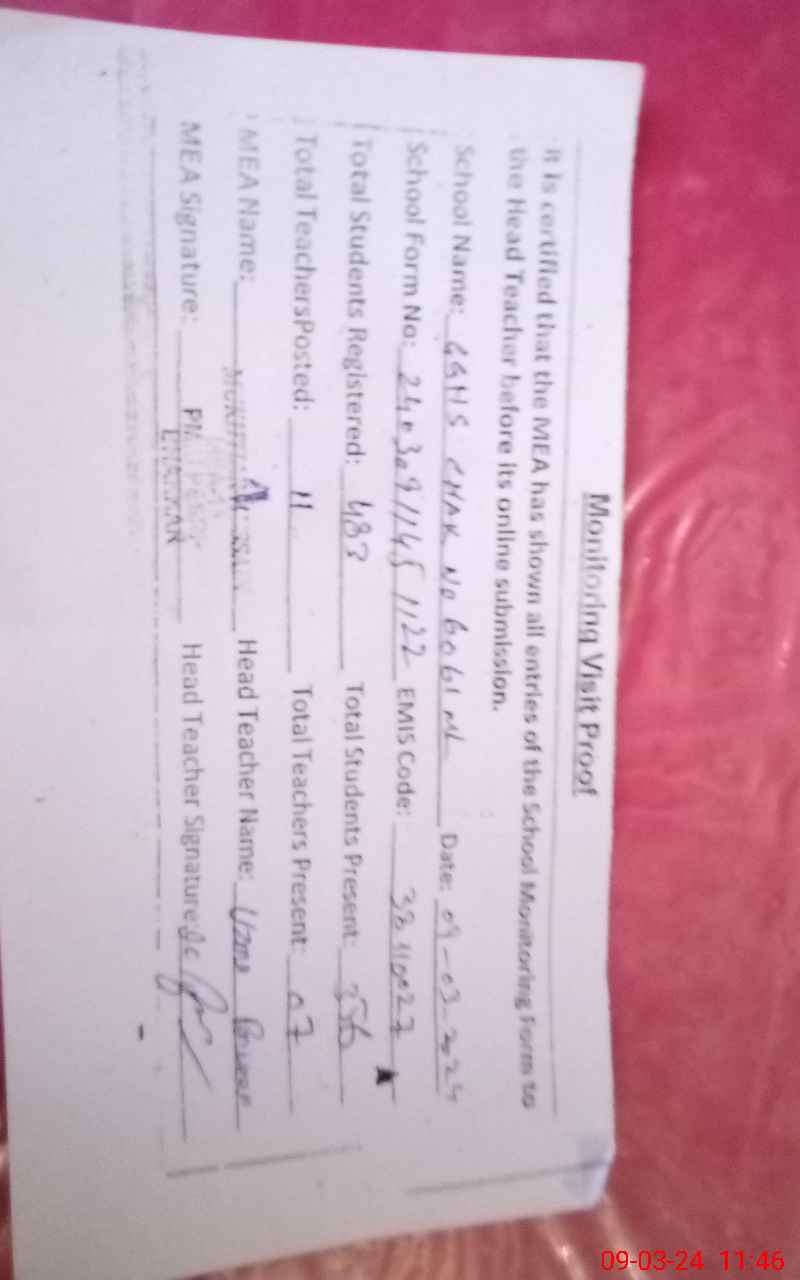 Monitoring Visit Proof
It is certified that the MEA has shown all entries of the School Monitoring Form to
the Head Teacher before its online submission.
School Name: GGHS CHAK NO 60 61 ML Date: 09-03-2024
School Form No: 24030911451122 EMIS Code: 32110027
Total Students Registered: 483 Total Students Present: 356
Total TeachersPosted: 11 Total Teachers Present: 07
MEA Name: Head Teacher Name: Uzma
MEA Signature: BHAKKAR Head Teacher Signature:
09-03-24 11:46